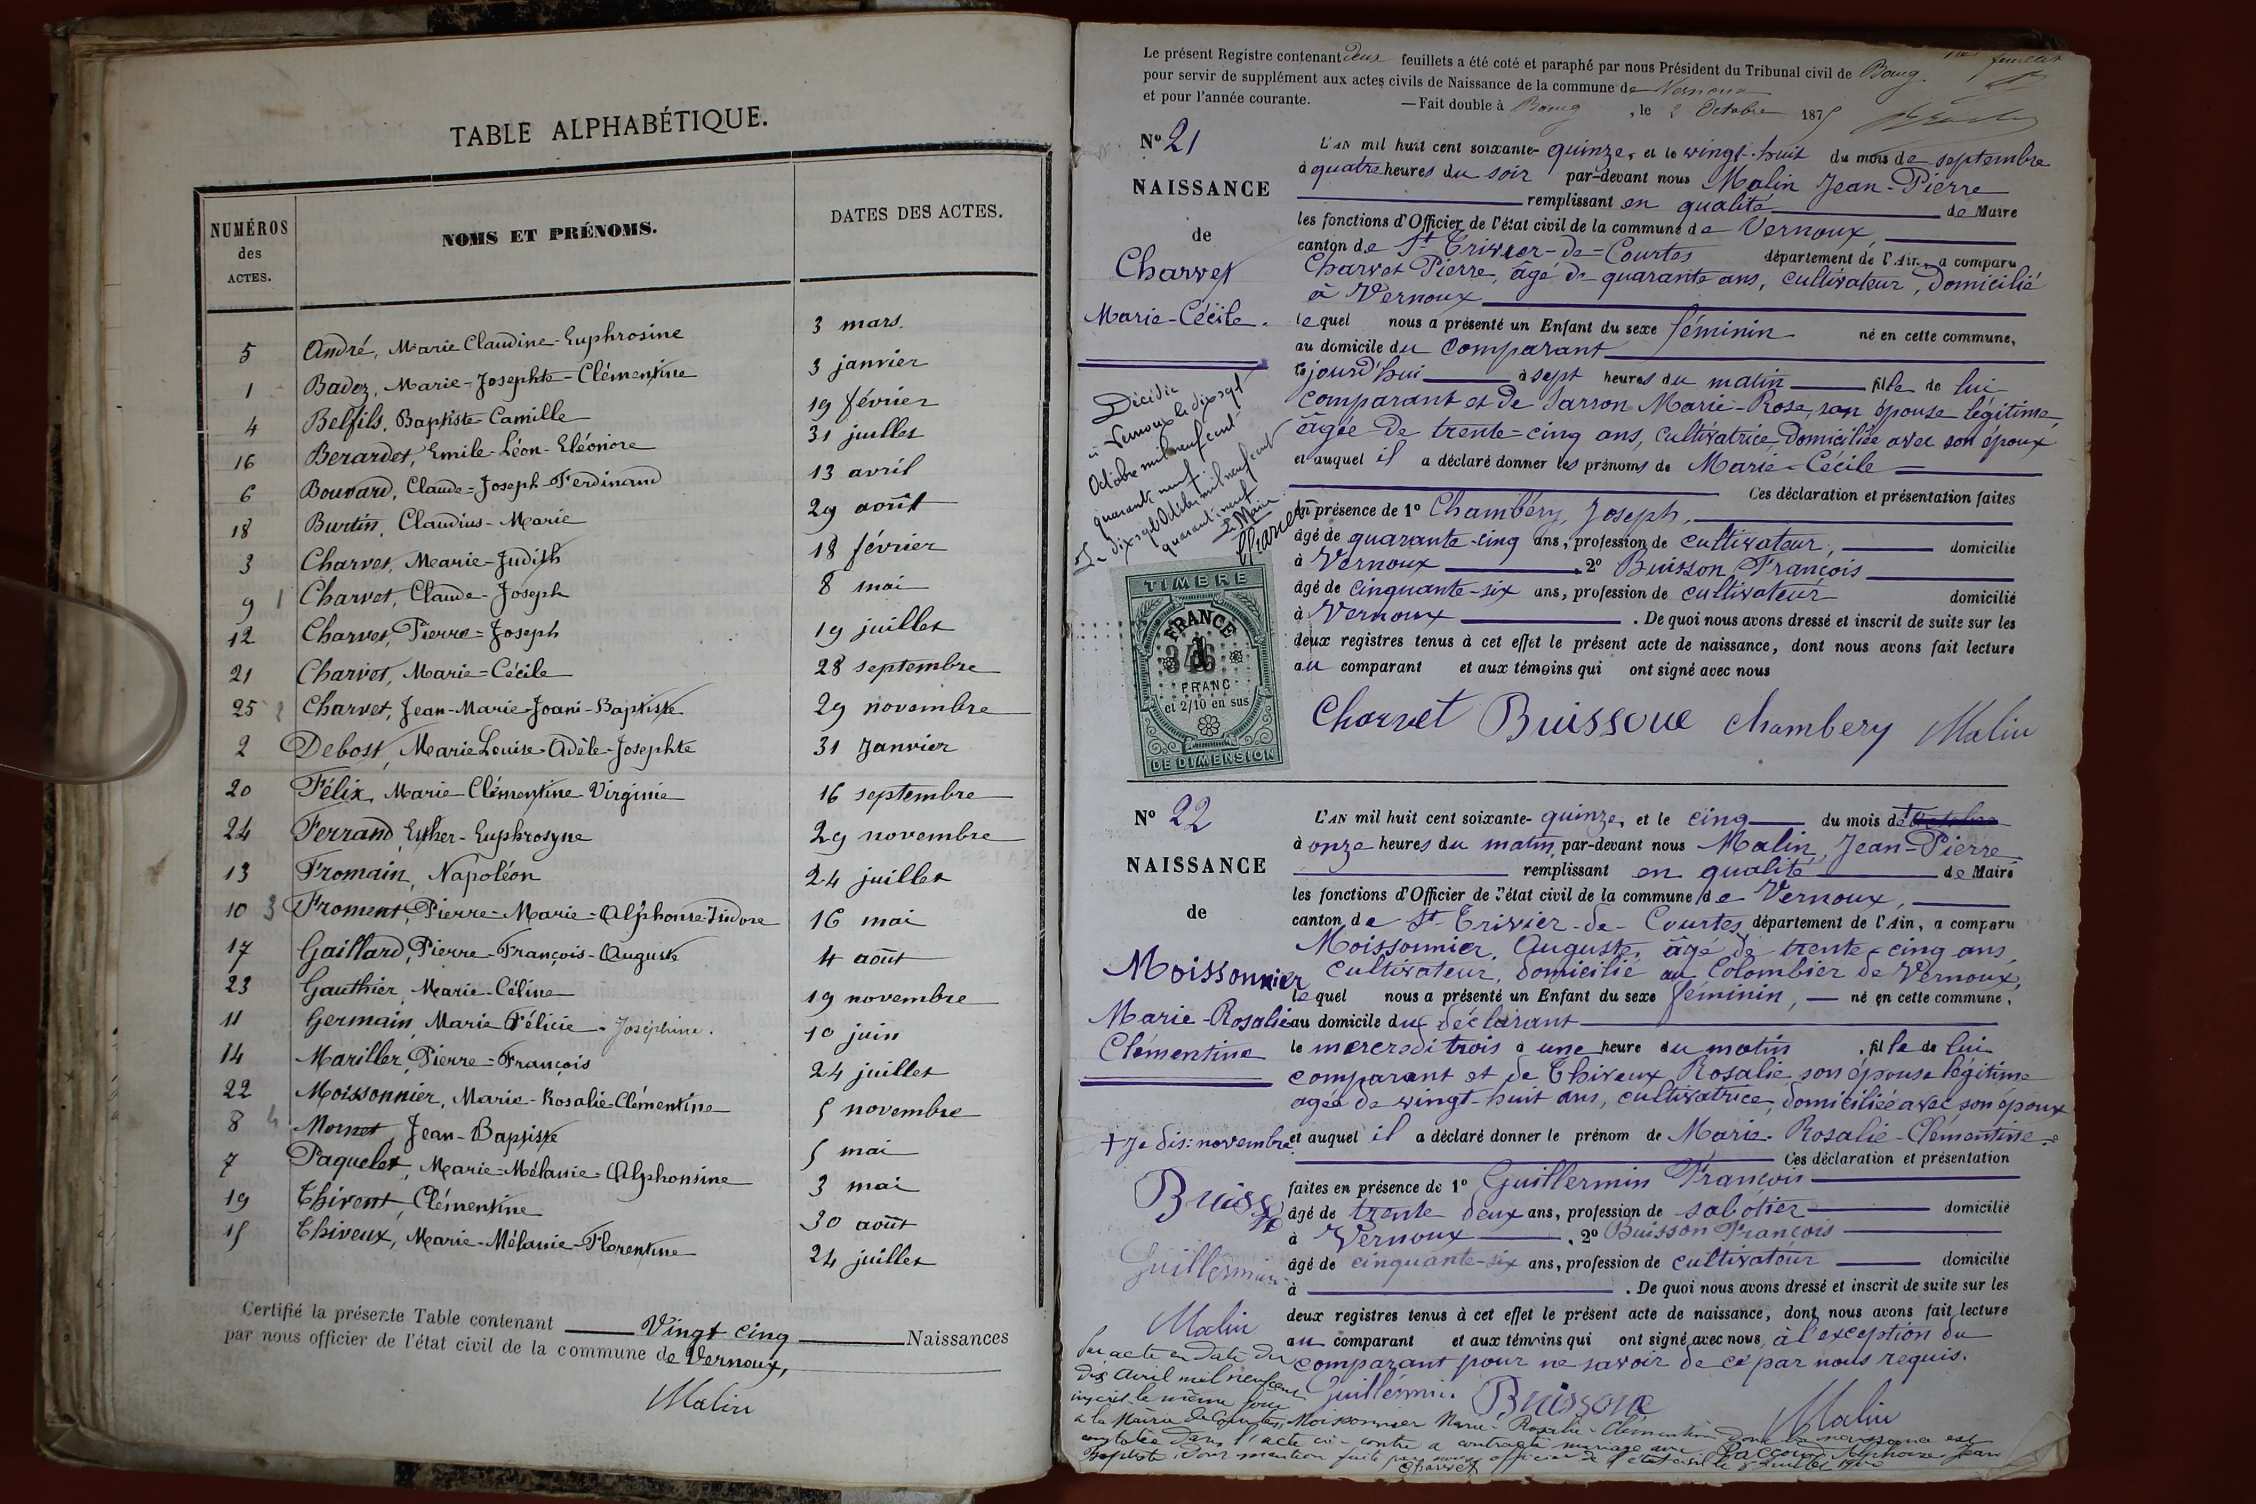 TABLE ALPHABÉTIQUE.
NUMÉROS des ACTES.
NOMS ET PRÉNOMS.
DATES DES ACTES.
5 André, Marie Claudine-Euphrosine 3 mars.
1 Badez, Marie-Josephte-Clémentine 3 janvier
4 Belfils, Baptiste-Camille 19 février
16 Berardet, Emile-Léon-Eléonore 31 juillet
6 Bouvard, Claude-Joseph-Ferdinand 13 avril
18 Burtin, Claudius-Marie 29 août
3 Charvet, Marie-Judith 18 février
9 1 Charvet, Claude-Joseph 8 mai
12 Charvet, Pierre-Joseph 19 juillet
21 Charvet, Marie-Cécile 28 septembre
25 2 Charvet, Jean-Marie-Joani-Baptiste 29 novembre
2 Debost, Marie Louise-Adèle-Josephte 31 Janvier
20 Félix, Marie-Clémentine-Virginie 16 septembre
24 Ferrand, Esther-Euphrosyne 29 novembre
13 Fromain, Napoléon 24 juillet
10 3 Froment, Pierre-Marie-Alphonse-Isidore 16 mai
17 Gaillard, Pierre-François-Auguste 4 août
23 Gauthier, Marie-Céline 19 novembre
11 Germain, Marie Félicie-Joséphine. 10 juin
14 Mariller, Pierre-François 24 juillet
22 Moissonnier, Marie-Rosalie-Clémentine 5 novembre
8 4 Mornet, Jean-Baptiste 5 mai
7 Paquelet, Marie-Mélanie-Alphonsine 3 mai
19 Thivent, Clémentine 30 août
15 Thiveux, Marie-Mélanie-Florentine 24 juillet
Certifié la présente Table contenant Vingt cinq Naissances
par nous officier de l'état civil de la commune de Vernoux,
Malin
Le présent Registre contenant deux feuillets a été coté et paraphé par nous Président du Tribunal civil de Bourg.
pour servir de supplément aux actes civils de Naissance de la commune de Vernoux
et pour l'année courante. — Fait double à Bourg, le 2 Octobre 1875
No 21
NAISSANCE
de
Charvet
Marie-Cécile.
L'AN mil huit cent soixante-quinze, et le vingt-huit du mois de septembre
à quatre heures du soir par-devant nous Malin Jean-Pierre
remplissant en qualité de Maire
les fonctions d'Officier de l'état civil de la commune de Vernoux,
canton de St Trivier-de-Courtes département de l'Ain, a comparu
Charvet Pierre, âgé de quarante ans, cultivateur, domicilié
à Vernoux
lequel nous a présenté un Enfant du sexe féminin né en cette commune,
au domicile du comparant
cejourd'hui à sept heures du matin fille de lui
comparant et de Sarron Marie-Rose, son épouse légitime,
âgée de trente-cinq ans, cultivatrice, domiciliée avec son époux
et auquel il a déclaré donner les prénoms de Marie-Cécile
Ces déclaration et présentation faites
en présence de 1o Chambéry, Joseph,
âgé de quarante-cinq ans, profession de cultivateur, domicilié
à Vernoux 2o Buisson François
âgé de cinquante-six ans, profession de cultivateur domicilié
à Vernoux. De quoi nous avons dressé et inscrit de suite sur les
deux registres tenus à cet effet le présent acte de naissance, dont nous avons fait lecture
au comparant et aux témoins qui ont signé avec nous
Charvet Buissoue Chambery Malin
Décédée
à Vernoux le dix sept
Octobre mil neuf cent
quarante neuf
Le dix sept Octobre mil neuf cent
quarante neuf
Le Maire
Charvet
TIMBRE
FRANCE
346
1
FRANC
et 2/10 en sus
DE DIMENSION
No 22
NAISSANCE
de
Moissonnier
Marie-Rosalie
Clémentine
L'AN mil huit cent soixante-quinze, et le cinq du mois de
à onze heures du matin, par-devant nous Malin, Jean-Pierre
remplissant en qualité de Maire
les fonctions d'Officier de l'état civil de la commune de Vernoux,
canton de St Trivier-de-Courtes département de l'Ain, a comparu
Moissonnier, Auguste, âgé de trente-cinq ans,
cultivateur, domicilié au Colombier de Vernoux,
lequel nous a présenté un Enfant du sexe féminin, né en cette commune,
au domicile du déclarant
le mercredi trois à une heure du matin, fille de lui
comparant et de Thiveux Rosalie, son épouse légitime
agée de vingt-huit ans, cultivatrice, domiciliée avec son époux
et auquel il a déclaré donner le prénom de Marie-Rosalie-Clémentine
Ces déclaration et présentation
faites en présence de 1o Guillermin François
âgé de trente deux ans, profession de sabotier domicilié
à Vernoux, 2o Buisson François
âgé de cinquante-six ans, profession de cultivateur domicilié
à . De quoi nous avons dressé et inscrit de suite sur les
deux registres tenus à cet effet le présent acte de naissance, dont nous avons fait lecture
au comparant et aux témoins qui ont signé avec nous, à l'exception du
comparant pour ne savoir de ce par nous requis.
Guillermin. Buissoue Malin
+ Je dis: novembre
Buiss
Guillermin
Malin
Par acte en date du
dix Avril mil neuf cent
inscrit le même jour
à la Mairie de Courtes, Moissonnier Marie-Rosalie-Clémentine dont la naissance est
constatée dans l'acte ci-contre a contracté mariage avec Paccoud Alphonse Jean
Baptiste. Dont mention faite par nous officier de l'état civil
Charvet